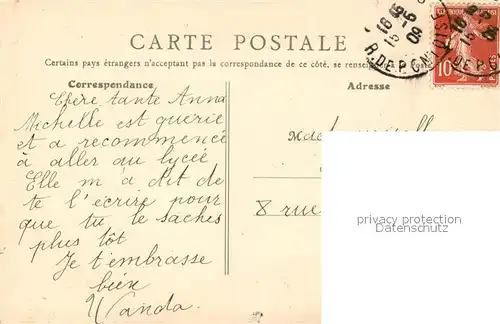 CARTE POSTALE
Certains pays étrangers n'acceptant pas la correspondance de ce côté, se renseigner à la Poste
Correspondance
Adresse
Chère tante Anna
Michelle est guérie
et a recommencé
à aller au lycée
Elle m'a dit de
te l'écrire pour
que tu le saches
plus tôt
Je t'embrasse
bien
Wanda.
8 rue
privacy protection
watermark
10